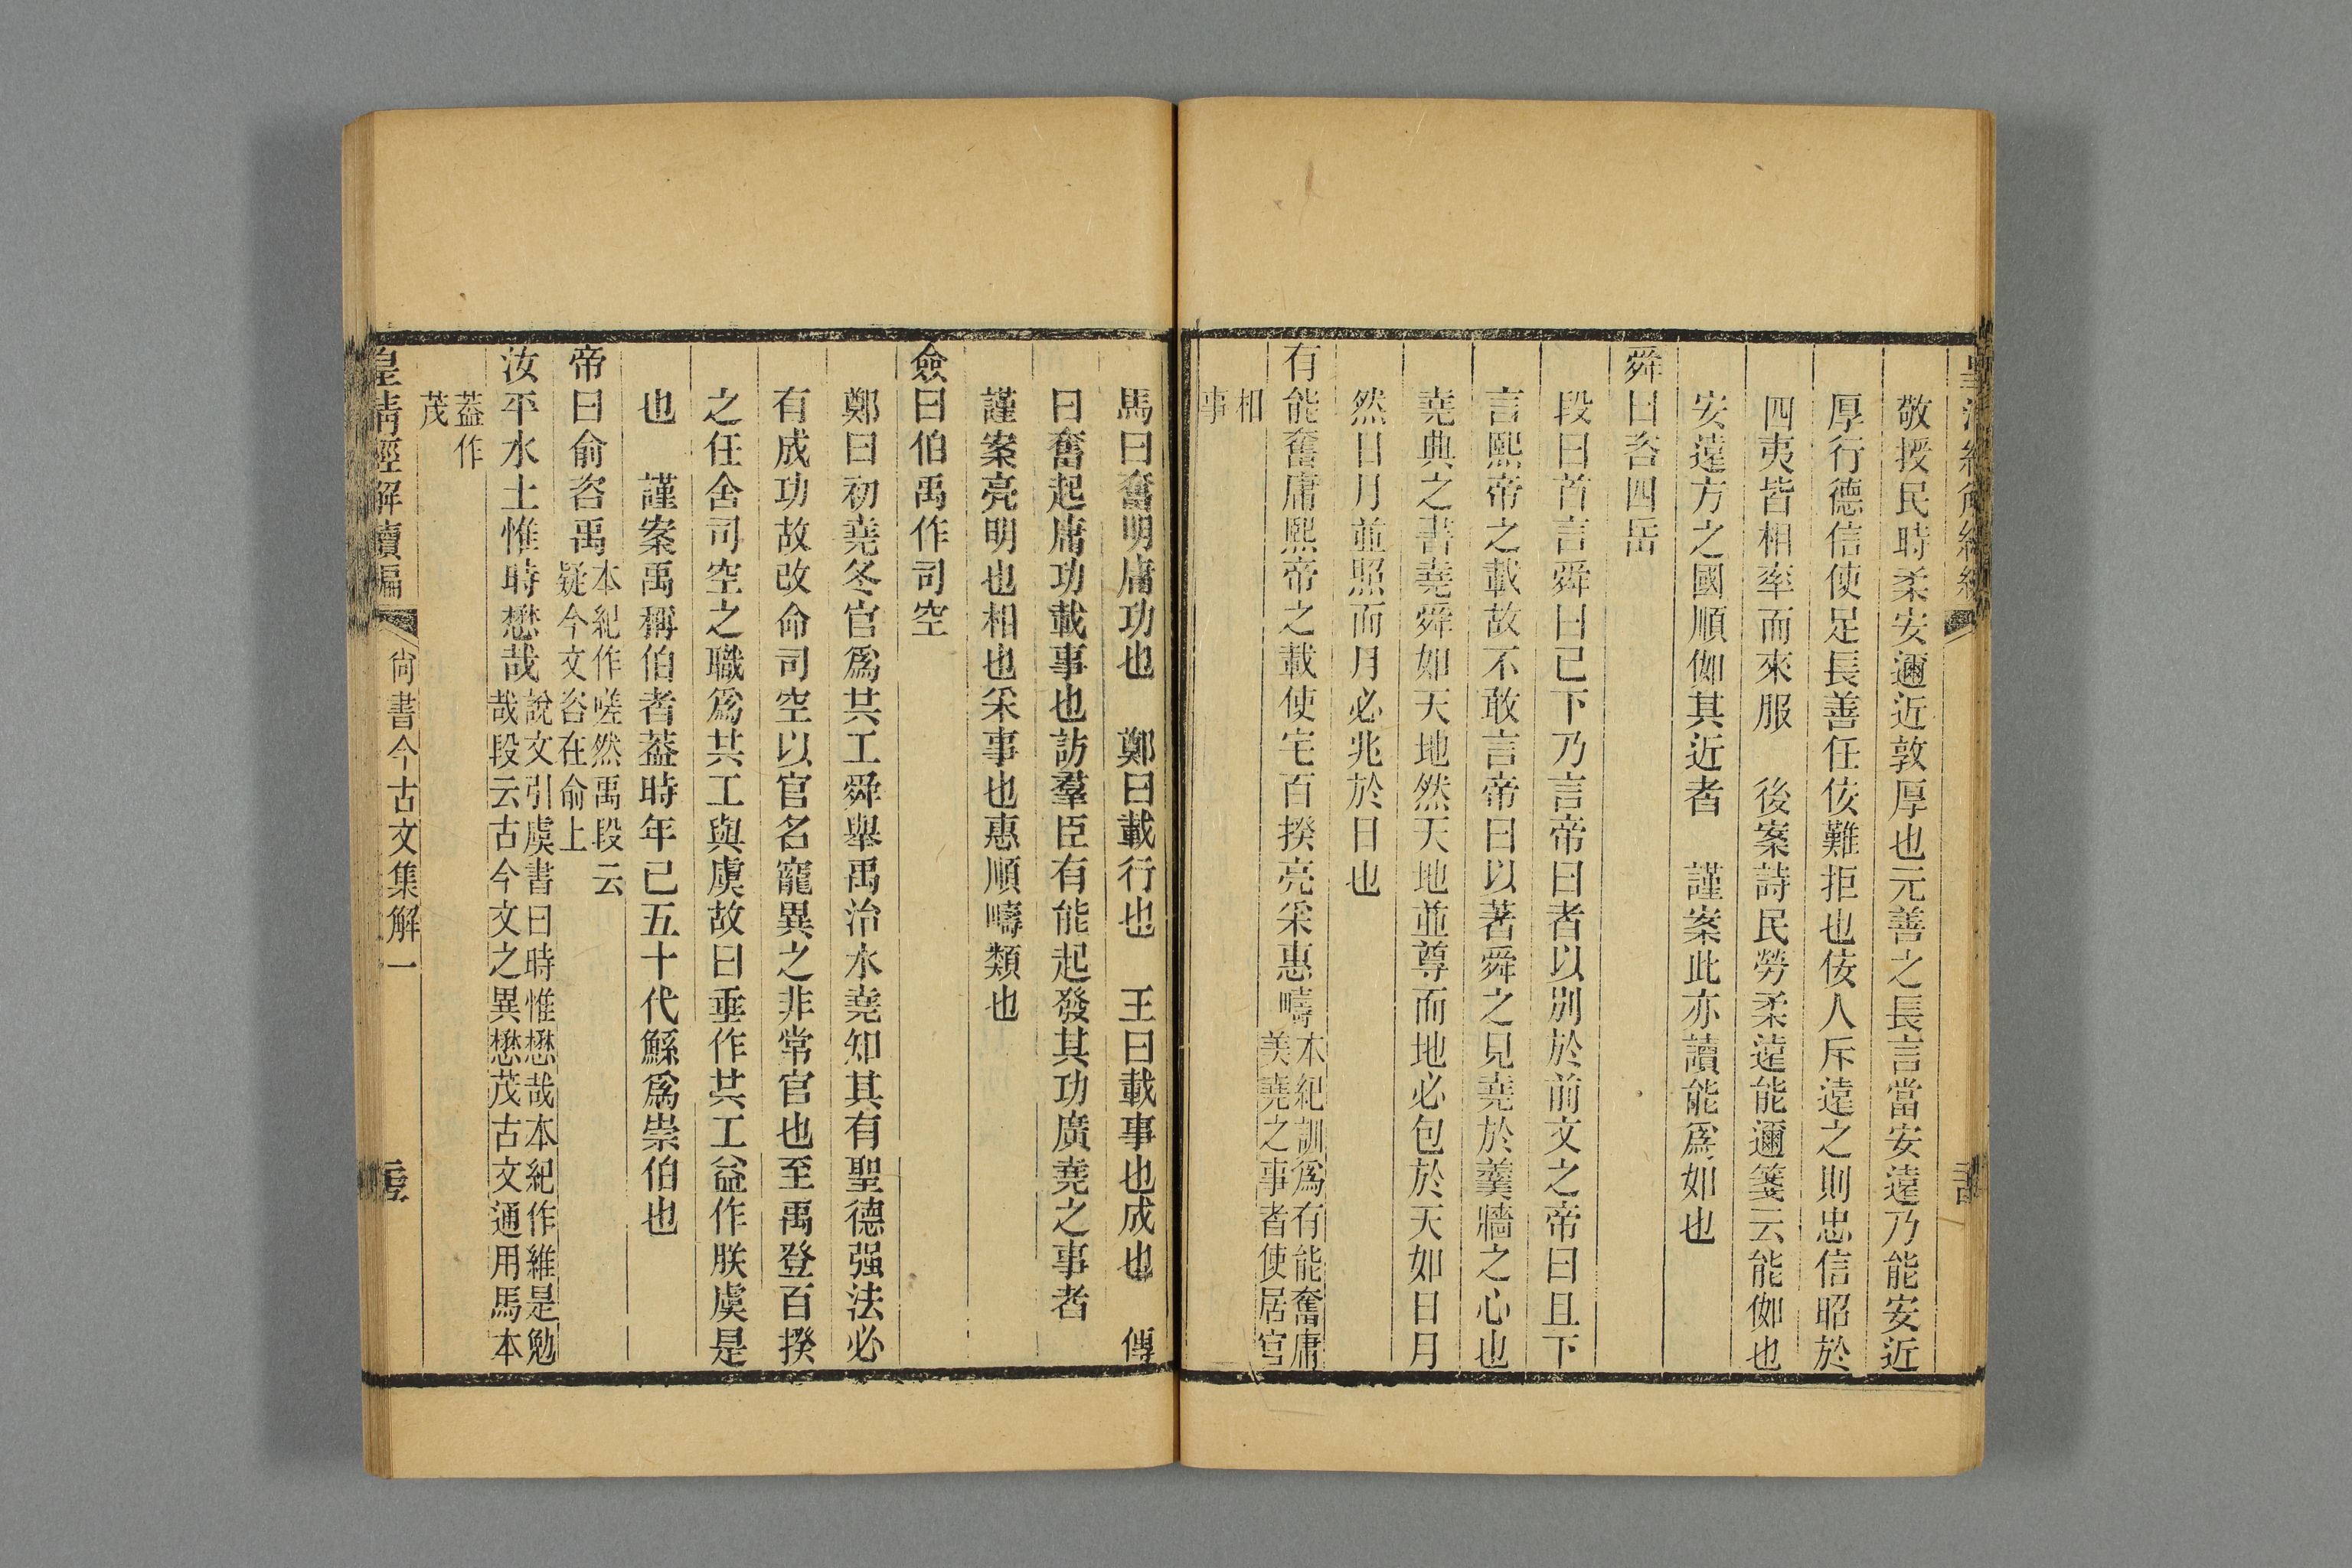 敬授民時柔安邇近敦厚也元善之長言當安遠乃能安近
厚行德信使足長善任佞難拒也佞人斥遠之則忠信昭於
四夷皆相率而來服　後案詩民勞柔遠能邇箋云能伽也
安遠方之國順伽其近者　謹案此亦讀能爲如也
舜曰咨四岳
段曰首言舜曰已下乃言帝曰者以別於前文之帝曰且下
言熙帝之載故不敢言帝曰以著舜之見堯於羹牆之心也
堯典之書堯舜如天地然天地並尊而地必包於天如日月
然日月並照而月必兆於日也
有能奮庸熙帝之載使宅百揆亮采惠疇
本紀訓爲有能奮庸
美堯之事者使居官
相
事
馬曰奮明庸功也　鄭曰載行也　王曰載事也成也　傳
曰奮起庸功載事也訪羣臣有能起發其功廣堯之事者
謹案亮明也相也采事也惠順疇類也
僉曰伯禹作司空
鄭曰初堯冬官爲共工舜舉禹治水堯知其有聖德强法必
有成功故改命司空以官名寵異之非常官也至禹登百揆
之任舍司空之職爲共工與虞故曰垂作共工益作朕虞是
也　謹案禹稱伯者葢時年已五十代鯀爲崇伯也
帝曰俞咨禹
本紀作嗟然禹段云
疑今文咨在俞上
汝平水土惟時懋哉
說文引虞書曰時惟懋哉本紀作維是勉
哉段云古今文之異懋茂古文通用馬本
葢作
茂
皇清經解續編
尙書今古文集解一